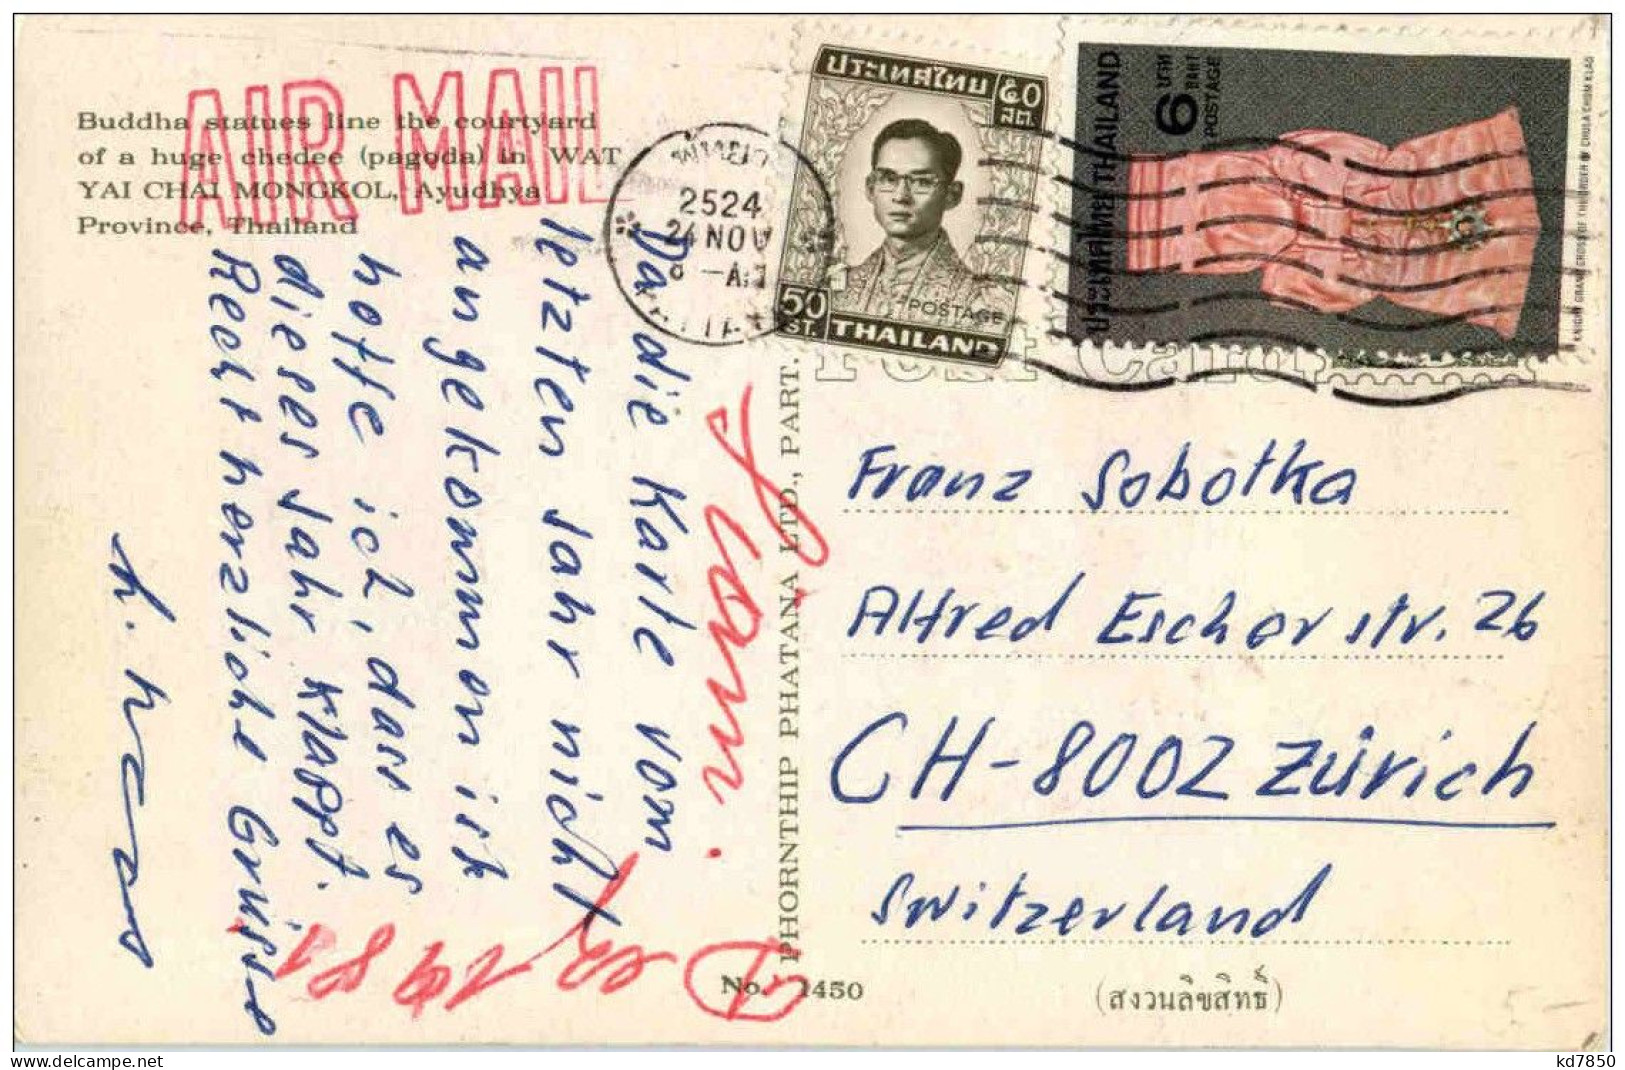 Buddha statues line the courtyard
of a huge chedee (pagoda) in WAT
YAI CHAI MONGKOL, Ayudhya
Province, Thailand
AIR MAIL
2524
24 NOV
ประเทศไทย ๕๐ สต.
50 ST. THAILAND
POSTAGE
ประเทศไทย THAILAND
6 บาท BAHT POSTAGE
KNIGHT GRAND CROSS OF THE ORDER OF CHULA CHOM KLAO
Post Card
Da die Karte vom
letzten Jahr nicht
angekommen ist
hoffe ich, dass es
dieses Jahr klappt.
Recht herzliche Grüsse
PHORNTHIP PHATANA LTD., PART.
1981
Franz Sobotka
Alfred Escherstr. 26
CH-8002 Zürich
Switzerland
No. 1450
(สงวนลิขสิทธิ์)
kd7850